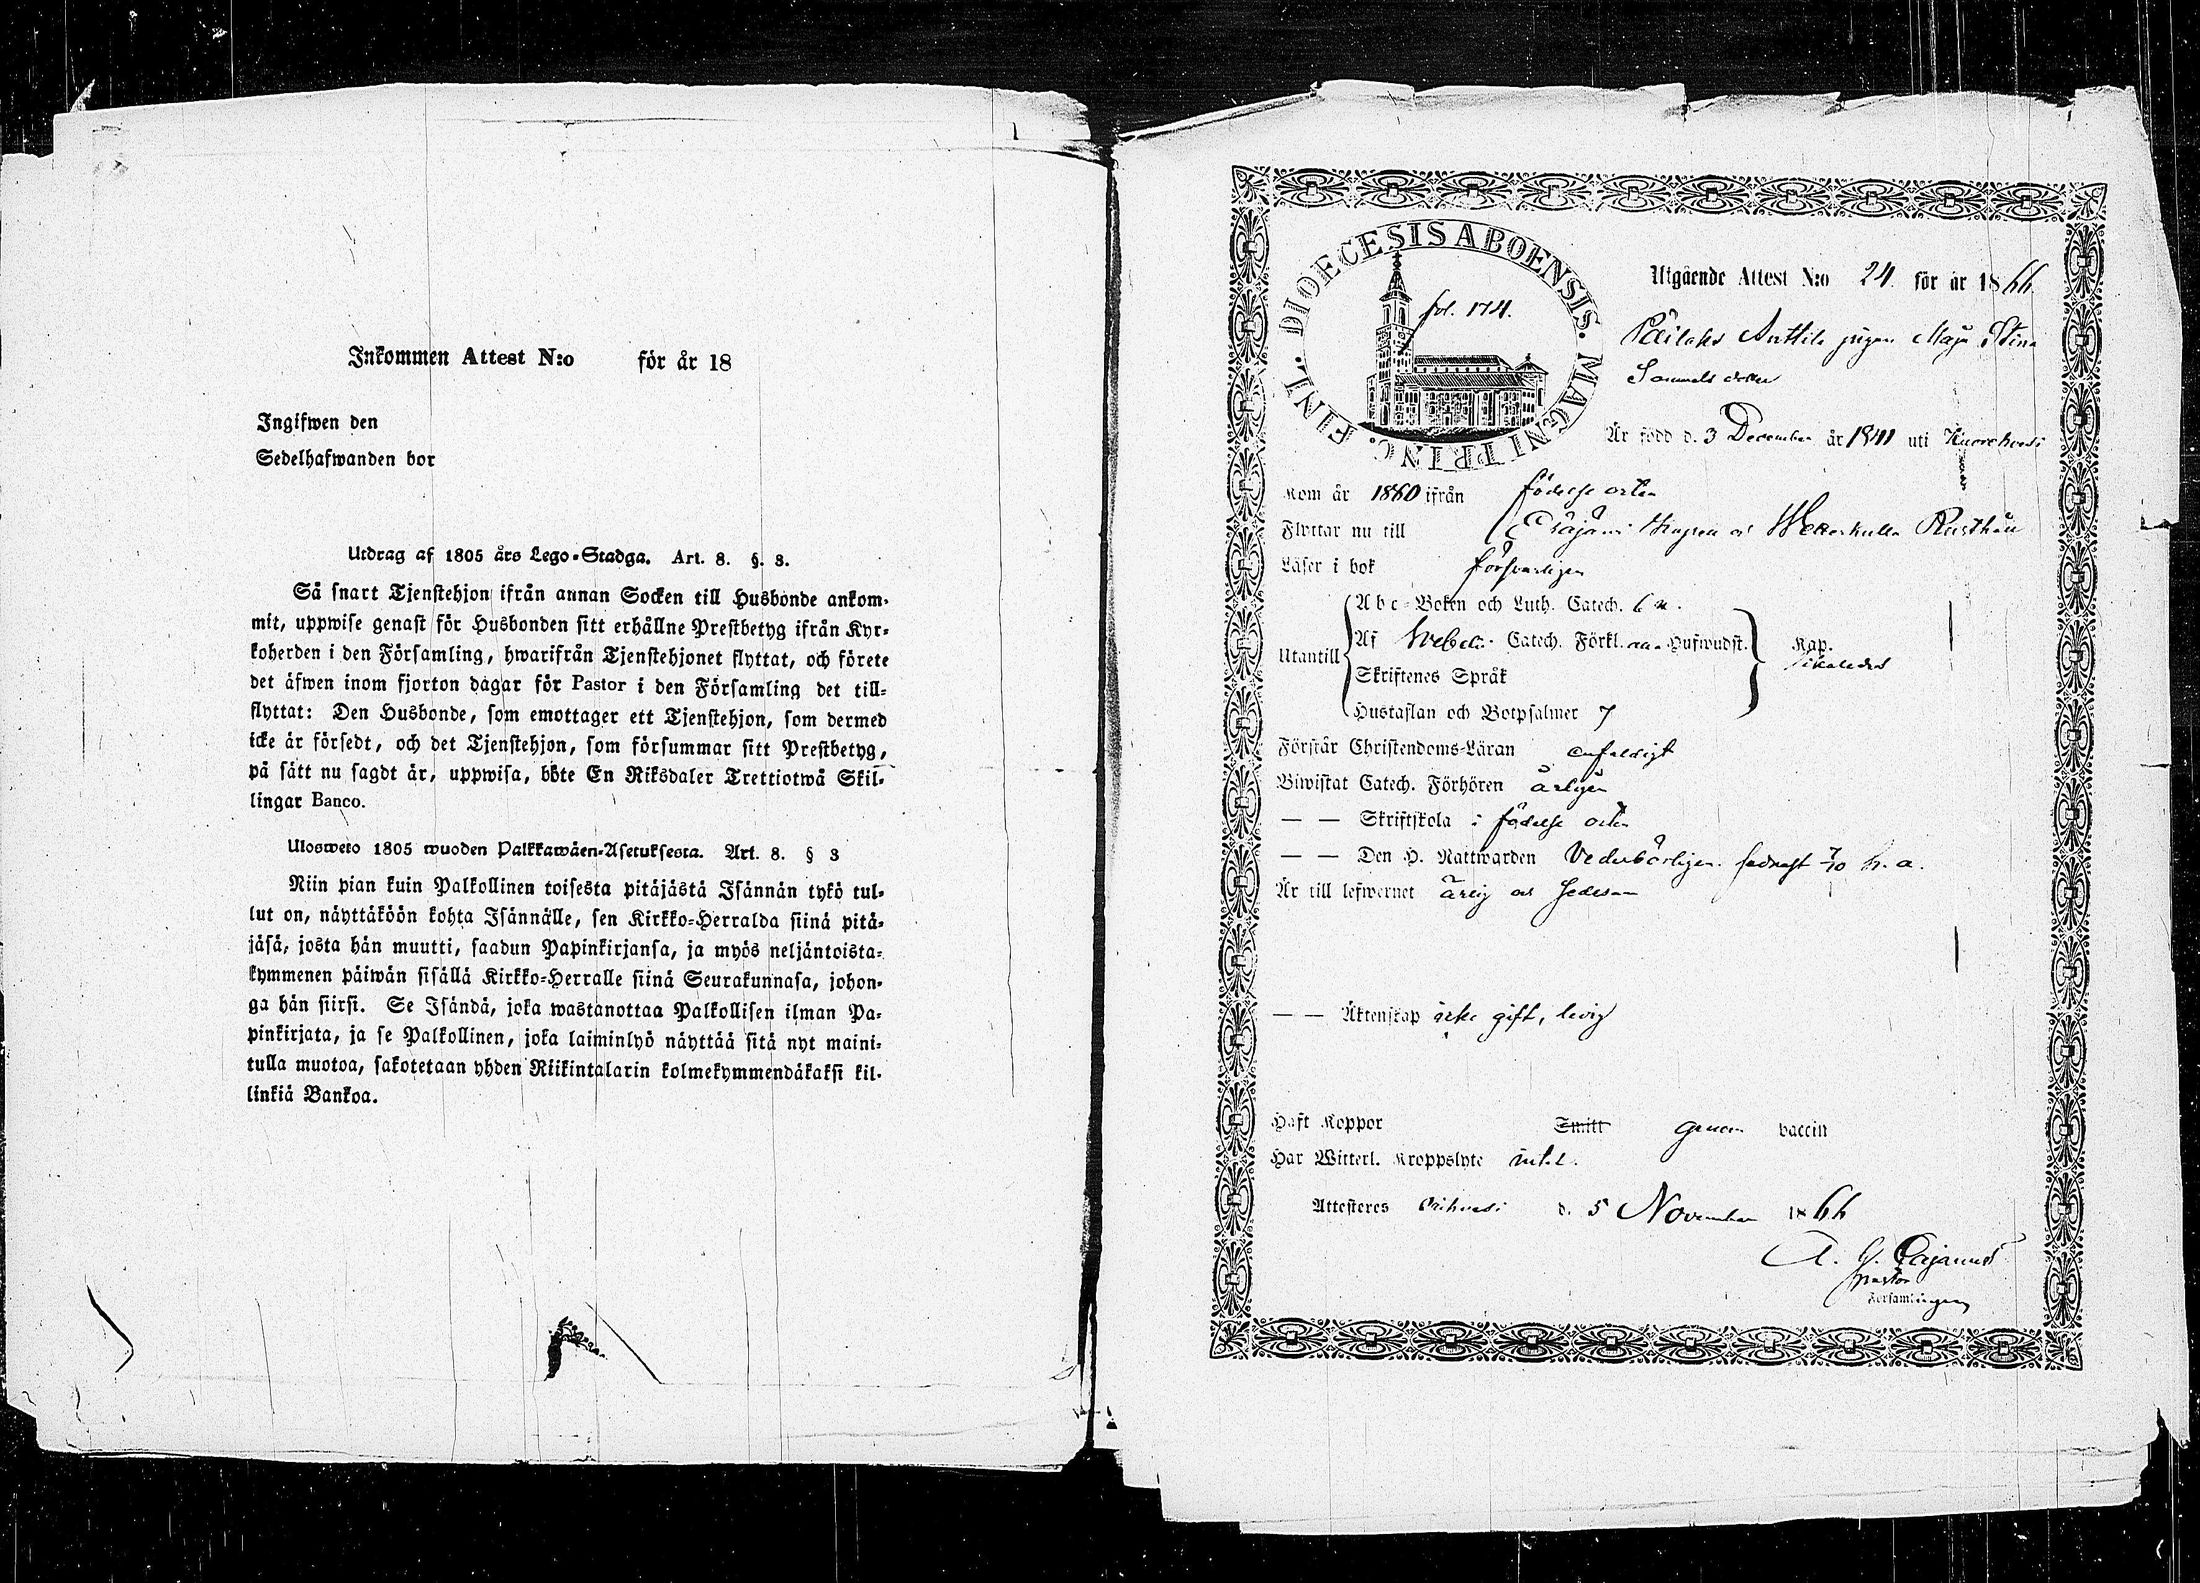 Inkommen Attest N:o för år 18
Ingifwen den
Sedelhafwanden bor
Utdrag af 1805 års Lego-Stadga. Art. 8. §. 3.
Så snart Tjenstehjon ifrån annan Socken till Husbonde ankom-
mit, uppwise genast för Husbonden sitt erhållne Prestbetyg ifrån Kyr-
koherden i den Församling, hwarifrån Tjenstehjonet flyttat, och förete
det äfwen inom fjorton dagar för Pastor i den Församling det till-
flyttat: Den Husbonde, som emottager ett Tjenstehjon, som dermed
icke är försedt, och det Tjenstehjon, som försummar sitt Prestbetyg,
på sätt nu sagdt är, uppwisa, böte En Riksdaler Trettiotwå Skil-
lingar Banco.
Ulosweto 1805 wuoden Palkkawäen-Asetuksesta. Art. 8. § 3
Niin pian kuin Palkollinen toisesta pitäjästä Isännän tykö tul-
lut on, näyttäköön kohta Isännälle, sen Kirkko-Herralda siinä pitä-
jäsä, josta hän muutti, saadun Papinkirjansa, ja myös neljäntoista-
kymmenen päiwän sisällä Kirkko-Herralle siinä Seurakunnasa, johon-
ga hän siirsi. Se Isändä, joka wastanottaa Palkollisen ilman Pa-
pinkirjata, ja se Palkollinen, joka laiminlyö näyttää sitä nyt maini-
tulla muotoa, sakotetaan yhden Riikintalarin kolmekymmendäkaksi kil-
linkiä Bankoa.
DIOECESIS ABOENSIS. MAGNI PRINC. FINL.
fol. 174.
Utgående Attest N:o 24 för år 1866
Päilahs Anttila pigan Maja Stina
Samuelsdotter
Är född d. 3 December år 1841 uti Kuorehvesi
Kom år 1860 ifrån födelse orten
Flyttar nu till Rusthåll
Läser i bok försvarligen
Utantill
Abc-Boken och Luth. Catech.
Af Svebelii Catech. Förkl. Hufwudst. Kap.
Skriftenes Språk
Hustaflan och Botpsalmer 7
Förstår Christendoms-Läran enfaldigt
Biwistat Catech. Förhören årligen
— — Skriftskola i födelse orten
— — Den H. Nattwarden Vederbörligen. sednast 7/10 h. a.
Är till lefwernet ärlig och sedesam
— — Äktenskap icke gift, ledig
Haft Koppor Smitt genom vaccin
Har Witterl. Kroppslyte intet.
Attesteres Orihvesi d. 5 November 1866
A. G. Cajanus
Pastor
Församlingen